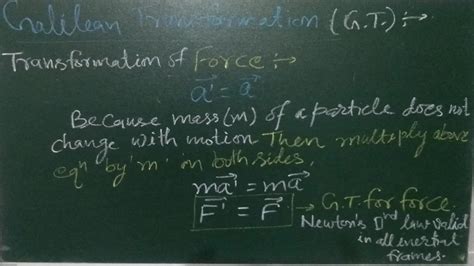 Galilean Transformation (G.T.) :→
Transformation of Force :→
a⃗' = a⃗
Because mass (m) of a particle does not
change with motion Then multiply above
eqⁿ by 'm' on both sides.
ma⃗' = ma⃗
F⃗' = F⃗ → G.T. for force.
Newton's IInd law valid
in all inertial
frames.